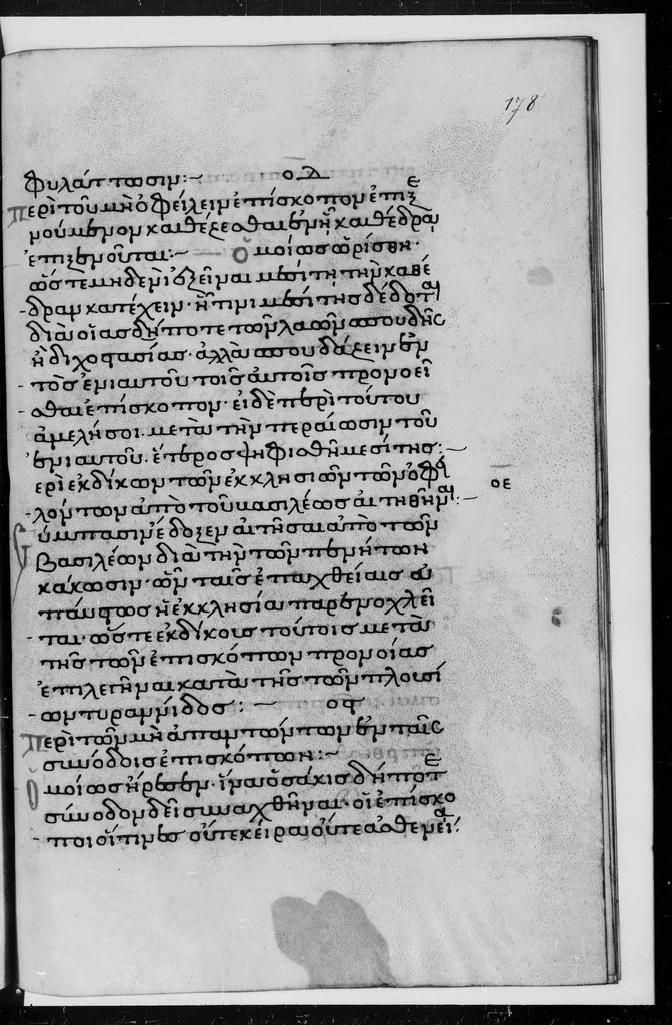 178
φυλάττωσιν:~ οδ
Περὶ τοῦ μὴ ὀφείλειν ἐπίσκοπον ἐπιζε
νούμενον καθέζεσθαι ἐν ἧ καθέδρα
ἐπιξενοῦται:~ Ὁμοίως ὡρίσθη·
ὥστε μηδενὶ ἐξεῖναι μεσίτῃ τὴν καθέ
δραν κατέχειν· ἥτινι μεσίτης δέδοται
διὰ οἱασδήποτε τῶν λαῶν σπουδῆς
ἢ διχοστασίας· ἀλλὰ σπουδάζειν ἐν
τὸς ἐνιαυτοῦ τοῖς αὐτοῖς προνοεῖ
σθαι ἐπίσκοπον· εἰ δὲ περὶ τούτου
ἀμελήσοι· μετὰ τὴν περαίωσιν τοῦ
ἐνιαυτοῦ· ἕτερος ψηφισθῇ μεσίτης:~
ερὶ ἐκδίκων τῶν ἐκκλησιῶν τῶν ὀφει οε
λόντων ἀπὸ τοῦ βασιλέως αἰτηθῆναι:~
Σύμπασιν ἔδοξεν αἰτῆσαι ἀπὸ τῶν
βασιλέων διὰ τὴν τῶν πενήτων
κάκωσιν· ὧν ταῖς ἐπαχθείαις ἀ
παύστως ἡ ἐκκλησία παρενοχλεῖ
ται· ὥστε ἐκδίκους τούτοις μετὰ
τῆς τῶν ἐπισκόπων προνοίας
ἐπιλεγῆναι κατὰ τῆς τῶν πλουσί
ων τυραννίδος:~ οϛ
Περὶ τῶν μὴ ἀπαντώντων ἐν ταῖς
συνόδοις ἐπισκόπων:~
Ὁμοίως ἤρεσεν· ἵνα ὁσάκις δήποτε
σύνοδον δεῖ συναχθῆναι· οἱ ἐπίσκο
ποι οἵτινες οὔτε κείρα οὔτε ἀσθενεί